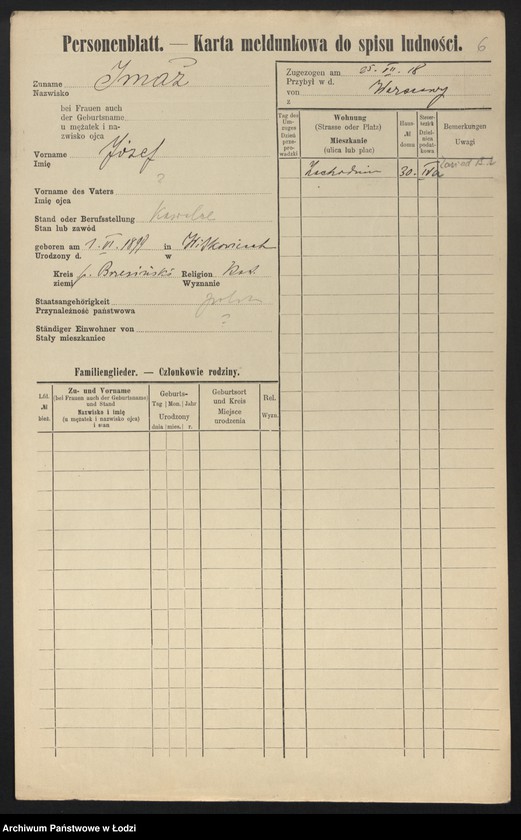 Personenblatt. — Karta meldunkowa do spisu ludności. 6
Zuname
Nazwisko
Imaż
bei Frauen auch
der Geburtsname
u mężatek i na-
zwisko ojca
Vorname
Imię
Józef
Vorname des Vaters ?
Imię ojca
Stand oder Berufsstellung Kawaler
Stan lub zawód
geboren am 1. VI. 1899 in
Urodzony d. w
Kreis p. Brzeziński Religion
ziemi Wyznanie
Staatsangehörigkeit
Przynależność państwowa
Ständiger Einwohner von ?
Stały mieszkaniec
Zugezogen am 25. VII. 18
Przybył w d.
von Warszawy
z
Tag des Um-
zuges
Dzień
prze-
prowadzki
Wohnung
(Strasse oder Platz)
Mieszkanie
(ulica lub plac)
Haus-
№
domu
Steuer-
bezirk
Dziel-
nica
podat-
kowa
Bemerkungen
Uwagi
Zachodnia 30. IVa
Familienglieder. — Członkowie rodziny.
Lfd.
№
bież.
Zu- und Vorname
(bei Frauen auch der Geburtsname)
und Stand
Nazwisko i imię
(u mężatek i nazwisko ojca)
i stan
Geburts-
Tag Mon. Jahr
Urodzony
dnia mies. r.
Geburtsort
und Kreis
Miejsce
urodzenia
Rel.
Wyzn.
Archiwum Państwowe w Łodzi